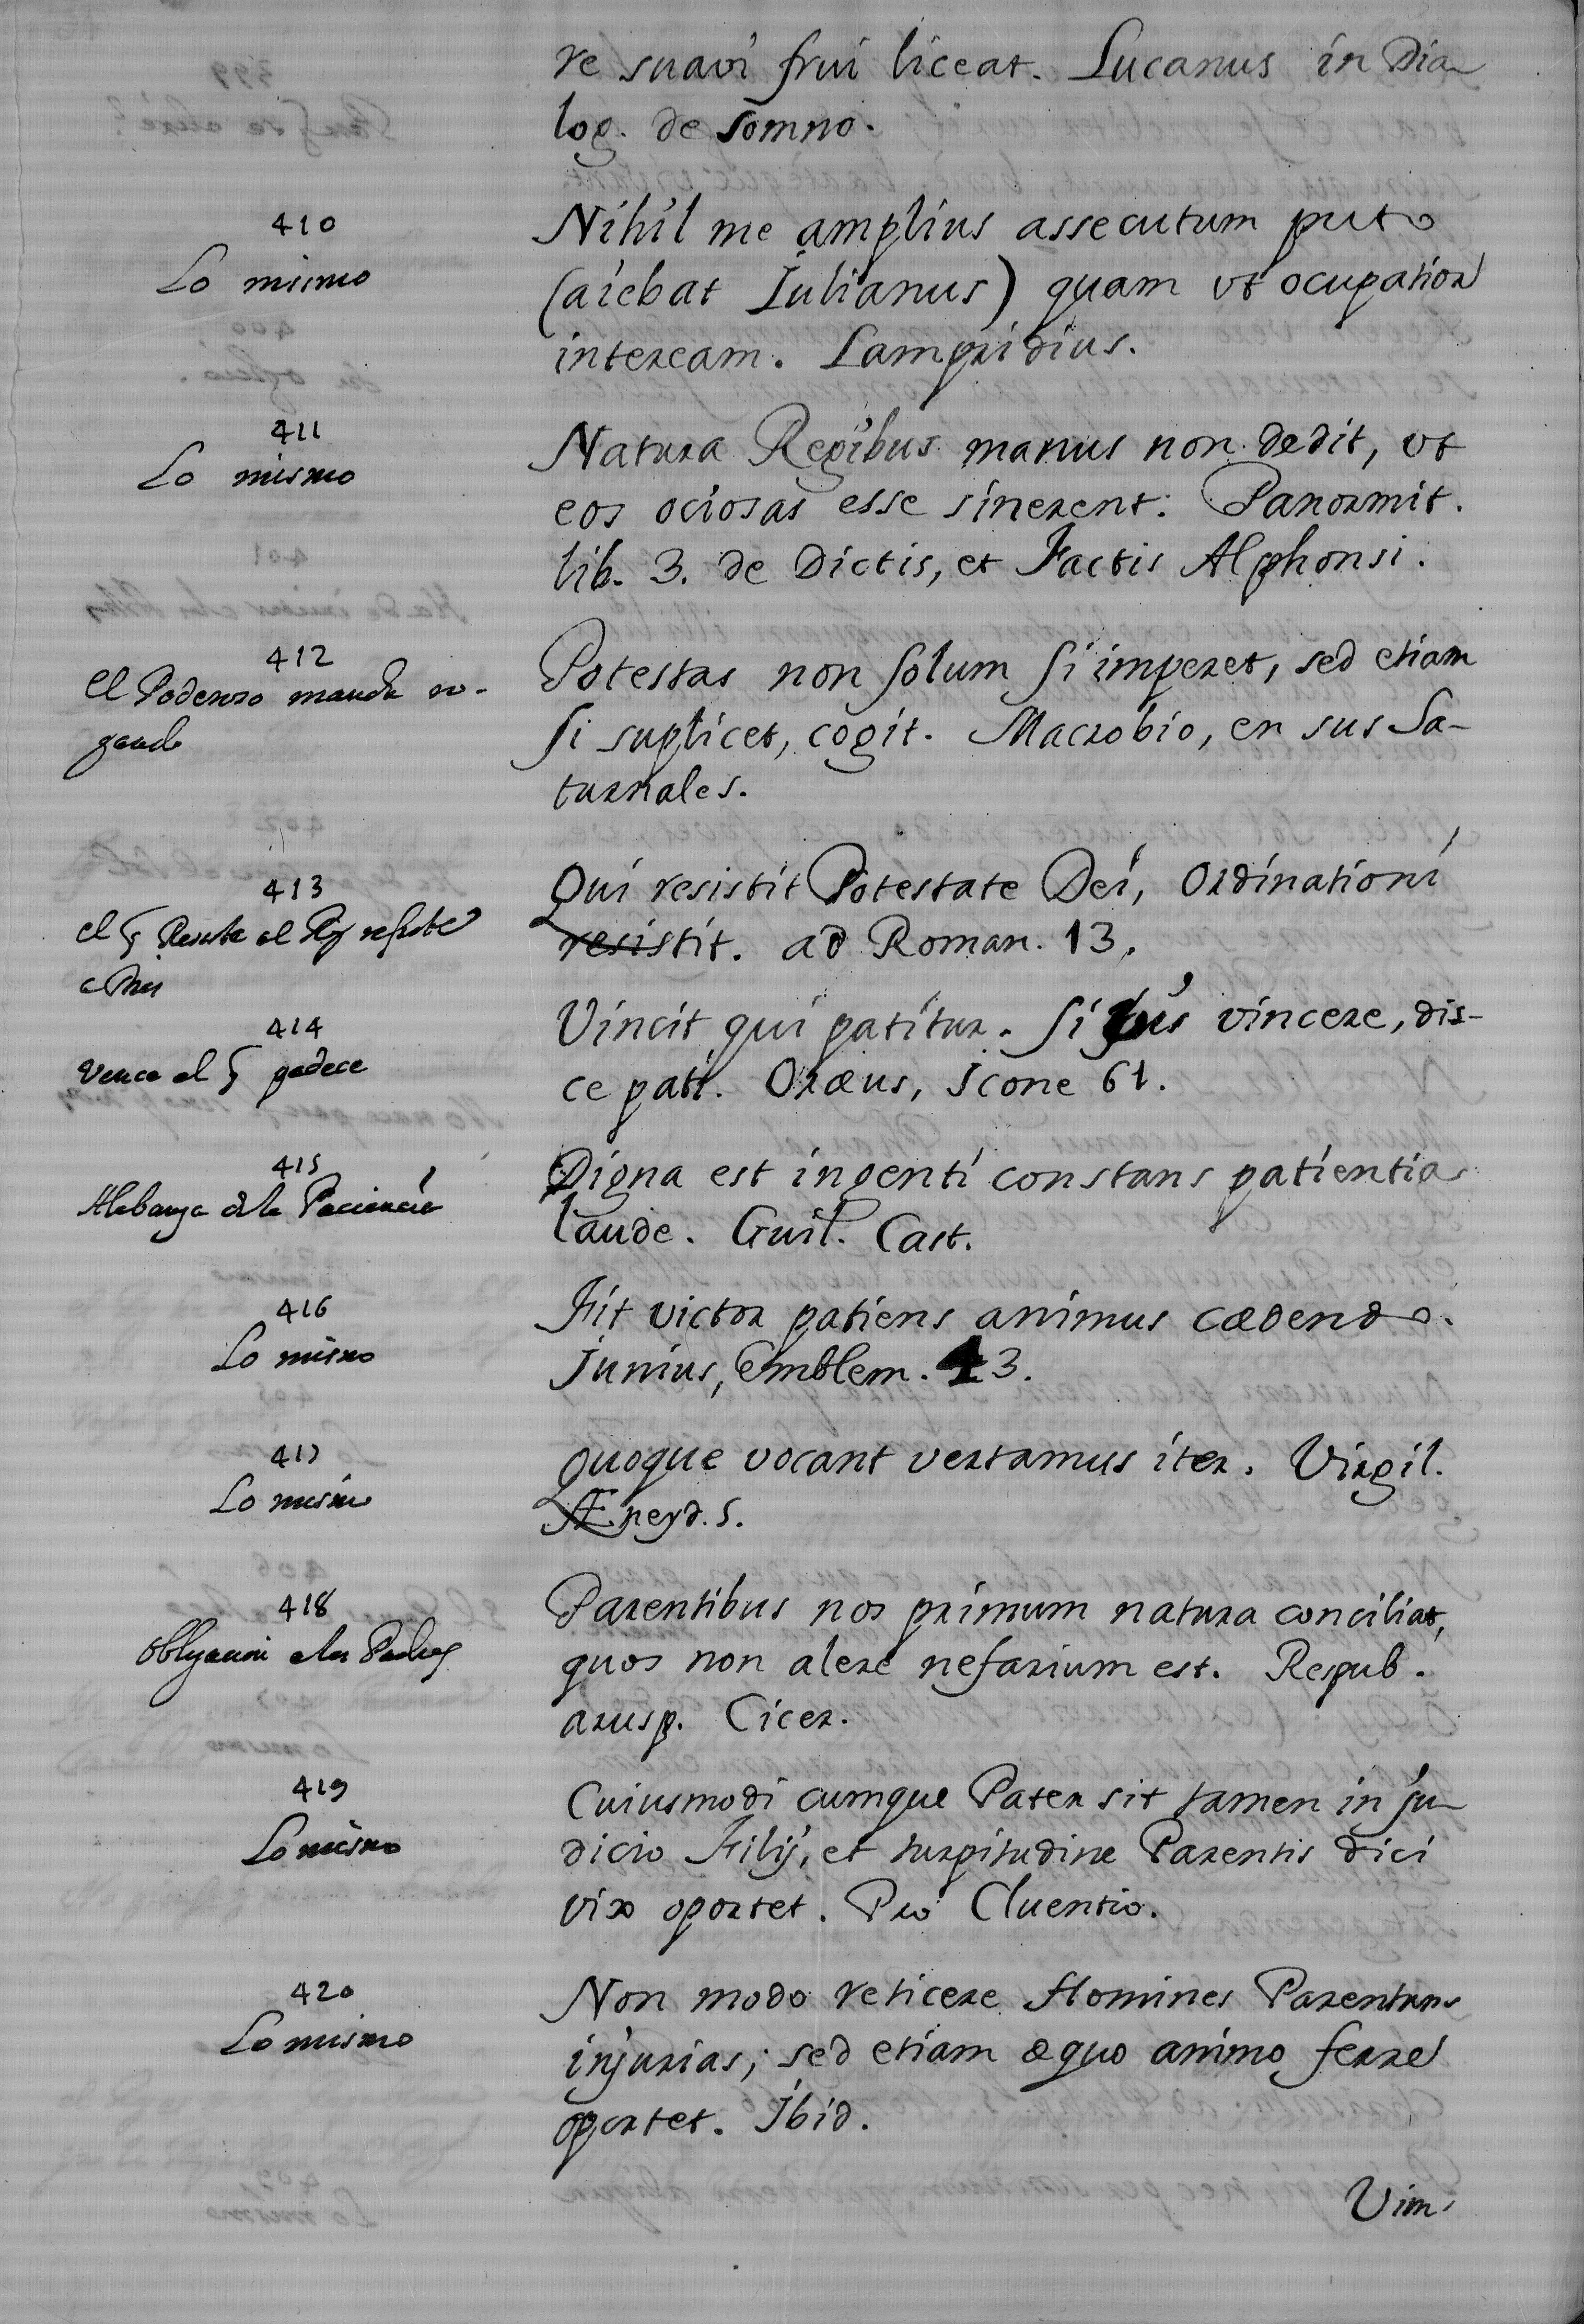 re suavi frui liceat. Lucanus in Dia
log. de Somno.
410
Lo mismo
Nihil me amplius assecutum puto
(aiebat Iulianus) quam vt ocupation
inteream. Lampridius.
411
Lo mismo
Natura Regibus manus non dedit, vt
eos ociosas esse sinerent: Panormit.
lib. 3. de Dictis, et Factis Alphonsi.
412
el Poderoso manda ro-
gando
Potestas non solum si imperet, sed etiam
si suplicet, cogit. Macrobio, en sus Sa-
turnales.
413
el q Resiste al Rey resiste
a Dios
Qui resistit Potestate Dei, Ordinationi
resistit. ad Roman. 13.
414
Vence el q padece
Vincit qui patitur. Si vis vincere, dis-
ce pati. Oræus, Icone 61.
415
Alabanza de la Paciencia
Digna est ingenti constans patientia
laude. Guil. Cast.
416
Lo mismo
Fit victor patiens animus cædendo.
Junius, Emblem. 43.
417
Lo mismo
Quoque vocant vertamus iter. Virgil.
Æneyd. 5.
418
Obligacion a los Padres
Parentibus nos primum natura conciliat,
quos non alere nefarium est. Respub.
arusp. Cicer.
419
Lo mismo
Cuiusmodi cumque Pater sit tamen in ju-
dicio Filij, et turpitudine Parentis dici
vix oportet. Pro Cluentio.
420
Lo mismo
Non modo reticere Homines Parentum
injurias; sed etiam æquo animo ferre
oportet. Ibid.
Vim